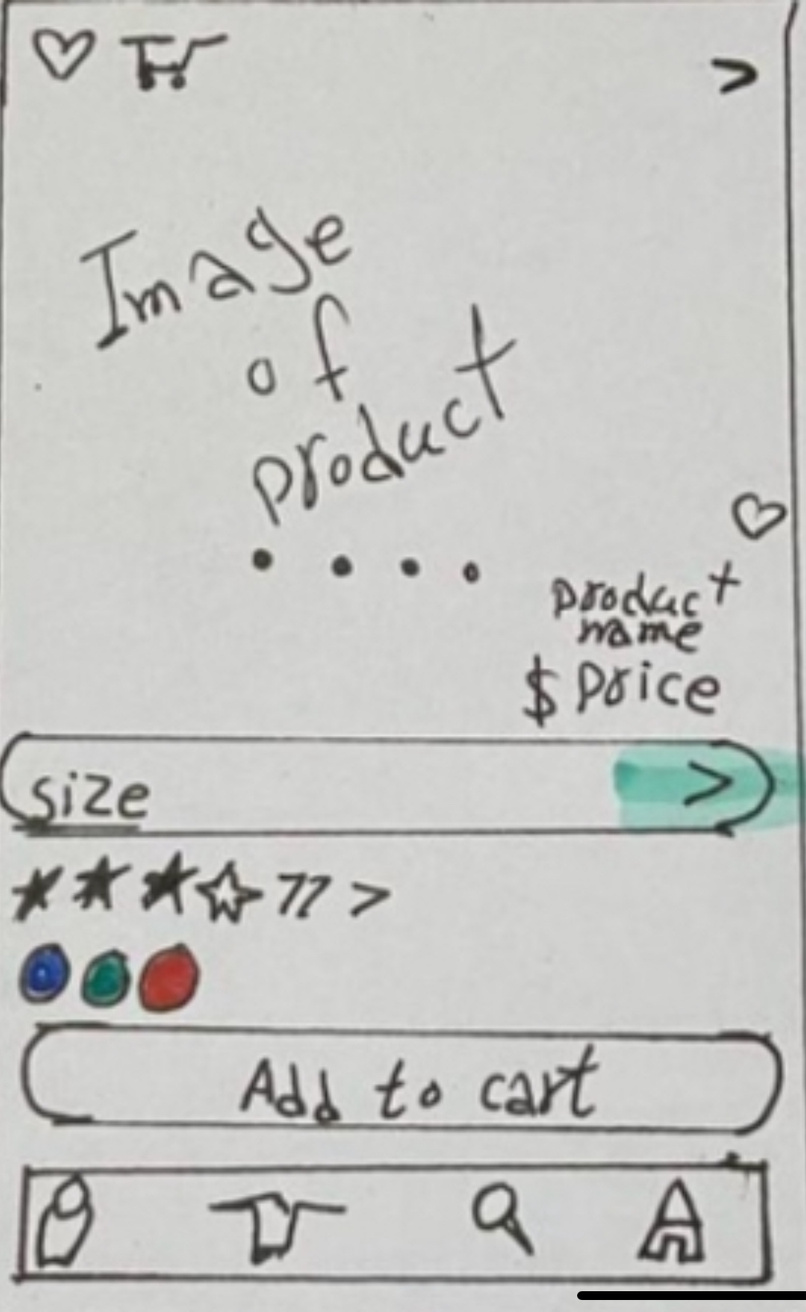 >
Image
of
product
product
name
$ price
size >
77 >
Add to cart